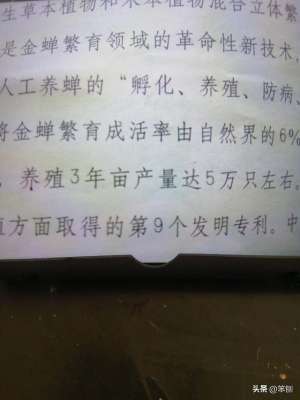 生草本植物和木本植物混合立体繁
是金蝉繁育领域的革命性新技术,
人工养蝉的“孵化、养殖、防病、
将金蝉繁育成活率由自然界的6%
，养殖3年亩产量达5万只左右。
殖方面取得的第9个发明专利。中
头条@笨刨